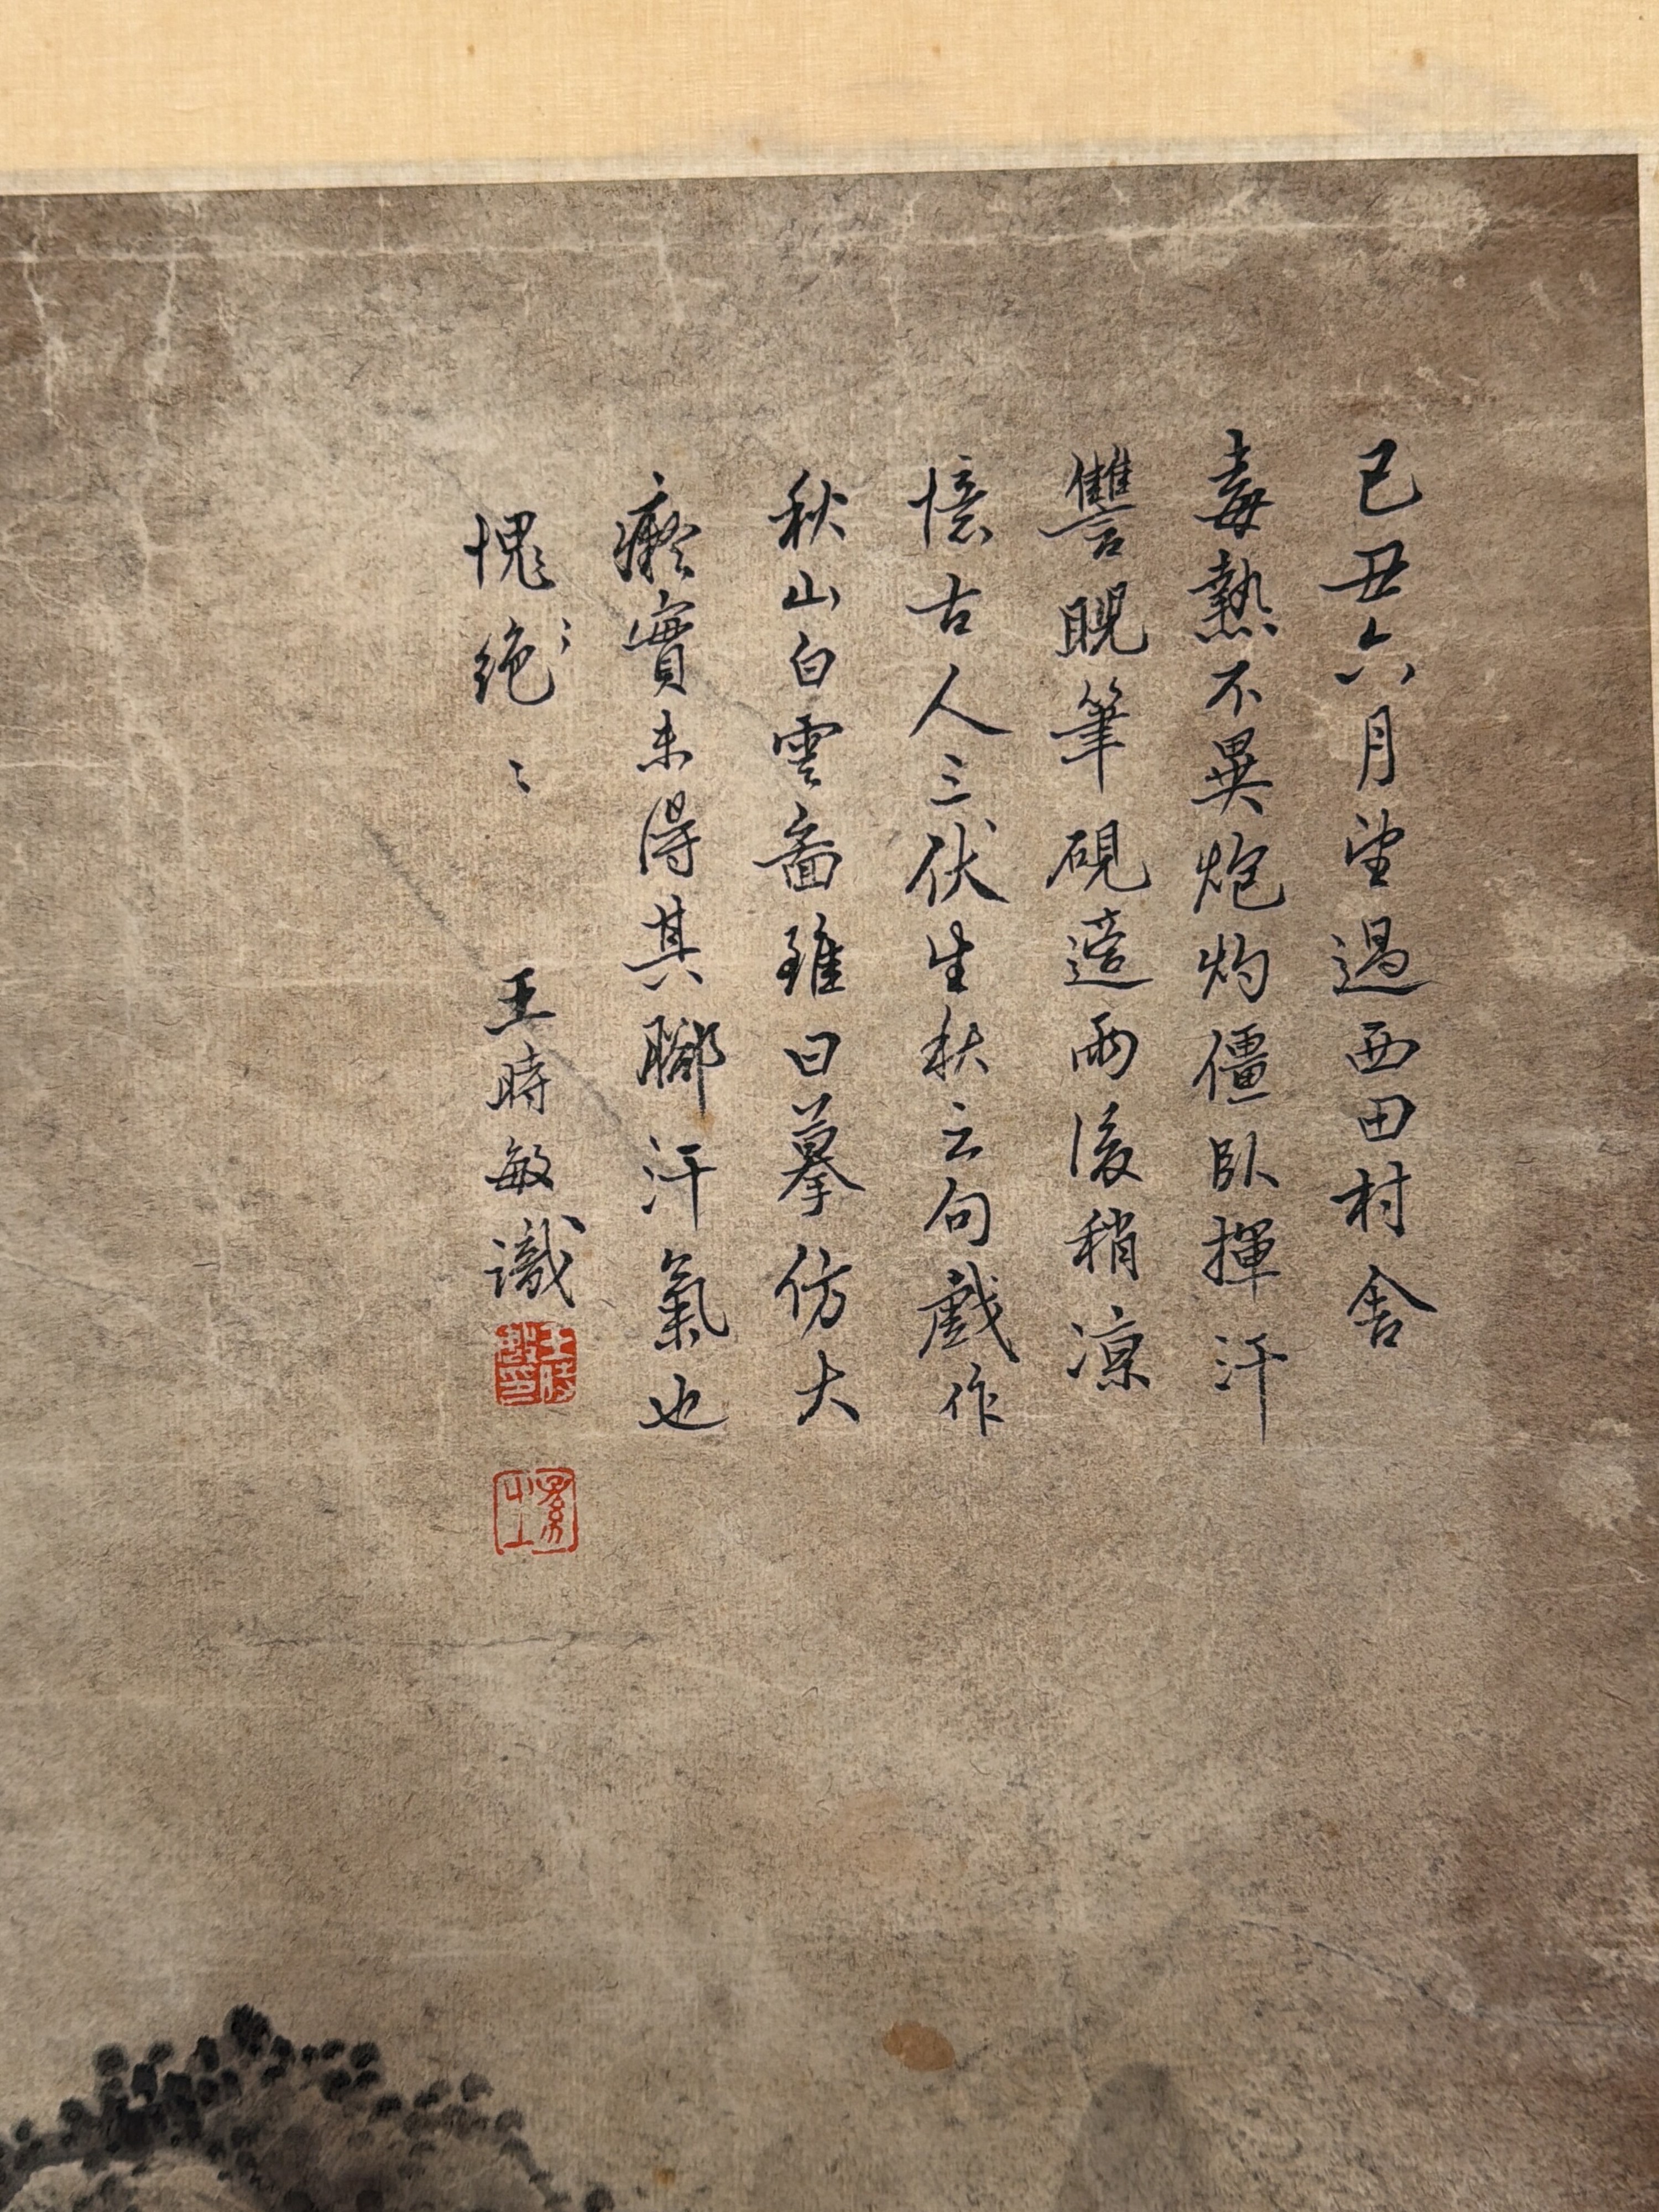 己丑六月望過西田村舍
毒熱不異炮灼僵臥揮汗
讐睨筆硯適雨後稍涼
憶古人三伏生秋之句戲作
秋山白雲啚雖曰摹仿大
癡實未得其腳汗氣也
愧愧絶絶 王時敏識
王時敏印